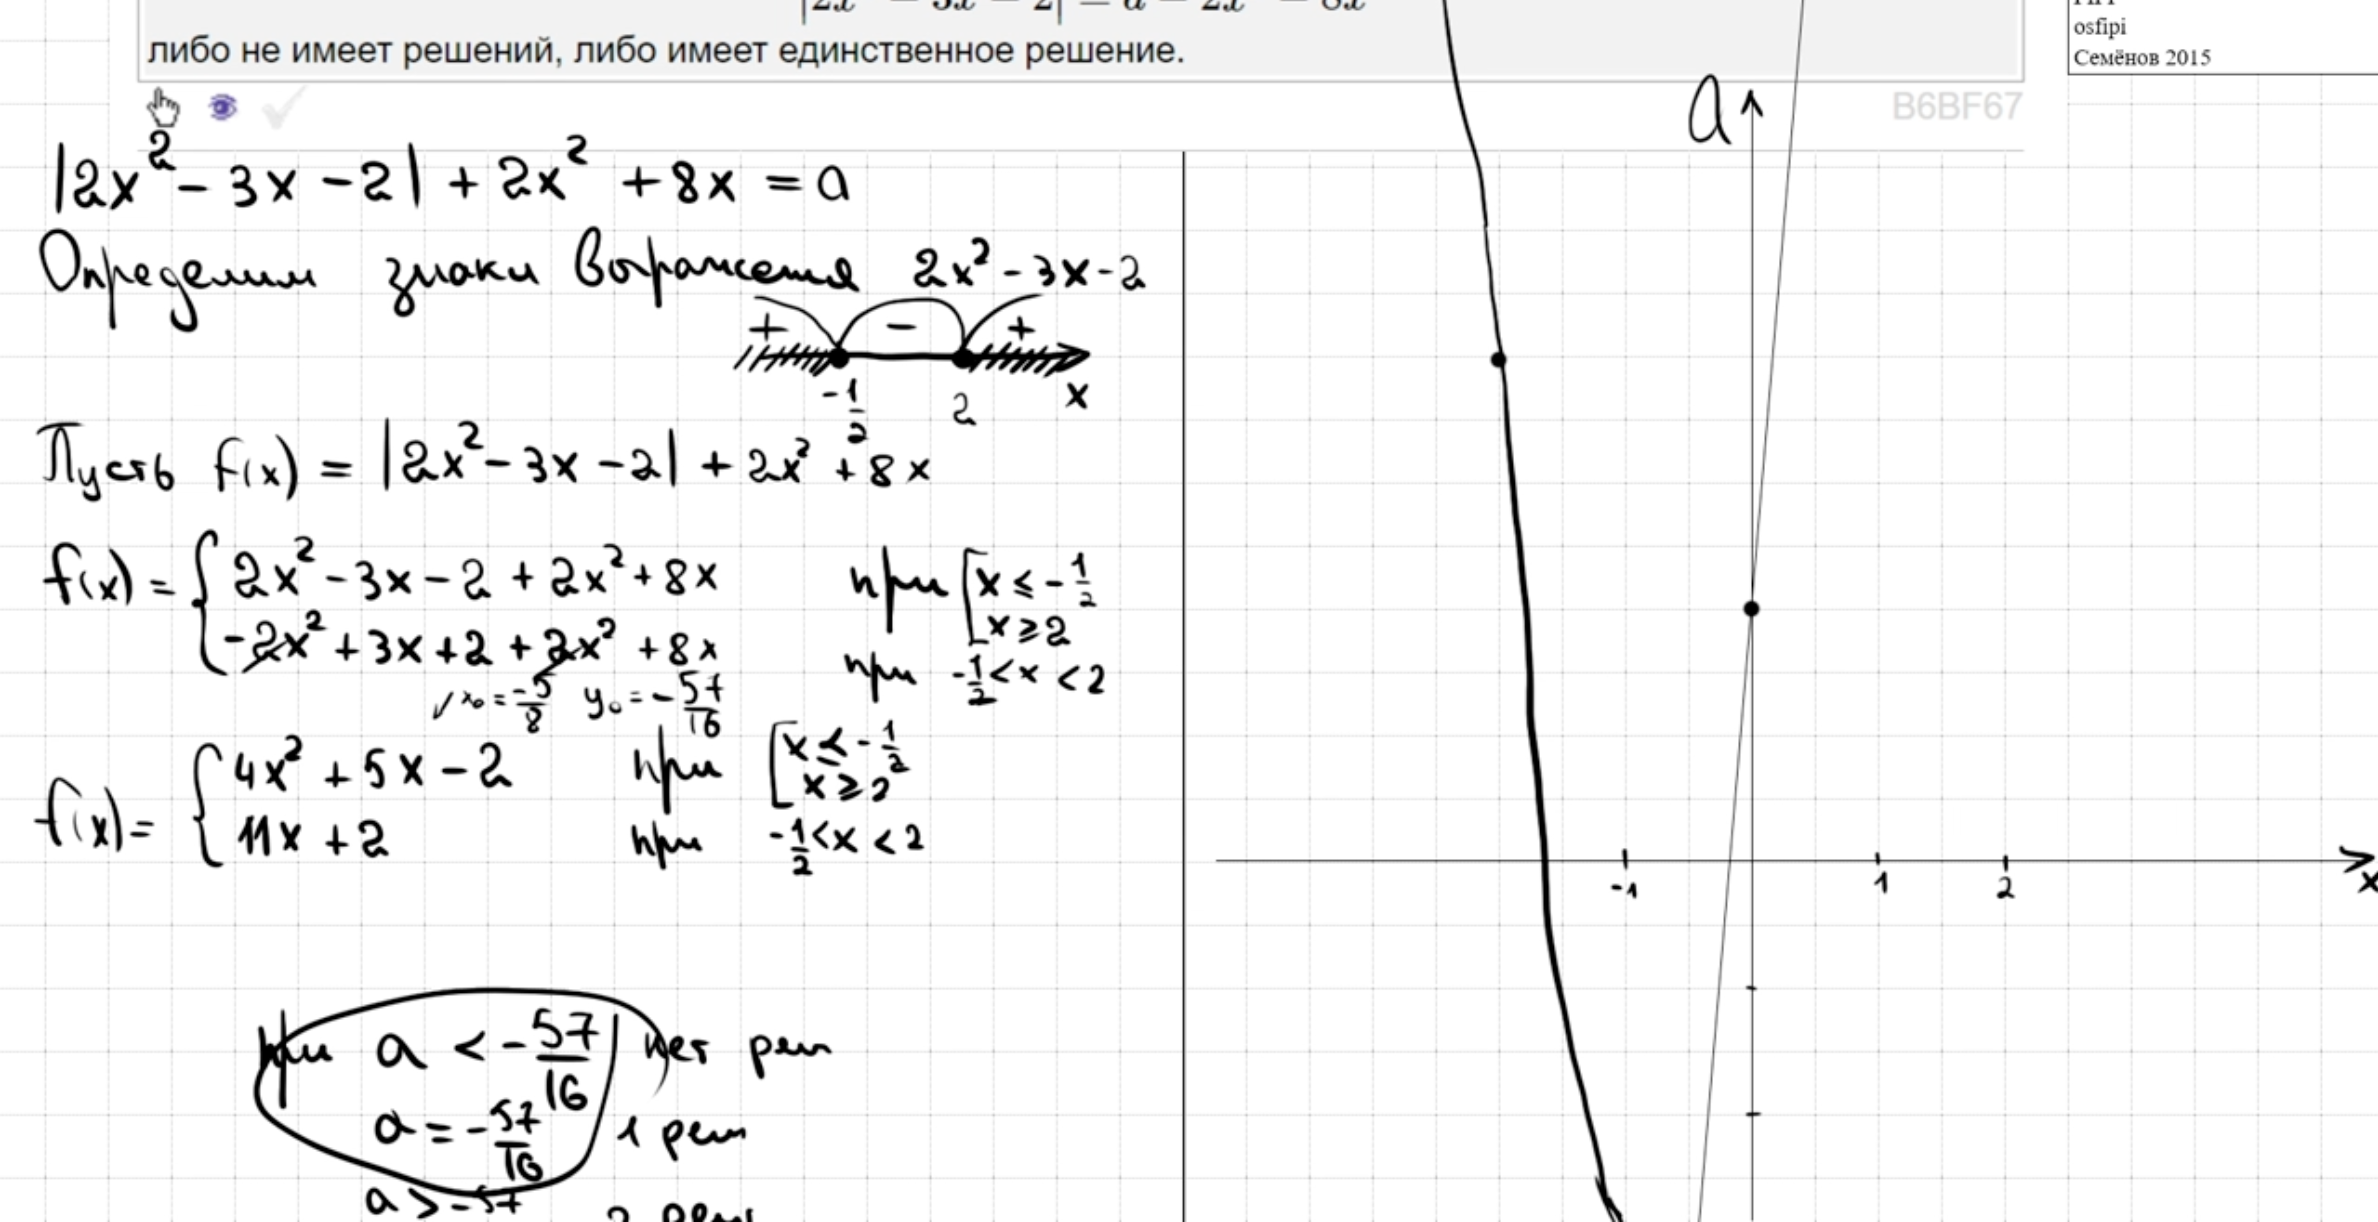 |2x² − 3x − 2| = a − 2x² − 8x
либо не имеет решений, либо имеет единственное решение.
osfipi
Семёнов 2015
B6BF67
|2x² - 3x - 2| + 2x² + 8x = a
Определим знаки выражения 2x² - 3x - 2
+ - +
-1/2 2 x
Пусть f(x) = |2x² - 3x - 2| + 2x² + 8x
f(x) = { 2x² - 3x - 2 + 2x² + 8x при [ x ≤ -1/2
x ≥ 2
-2x² + 3x + 2 + 2x² + 8x при -1/2 < x < 2
x₀ = -5/8 y₀ = -57/16
f(x) = { 4x² + 5x - 2 при [ x ≤ -1/2
x ≥ 2
11x + 2 при -1/2 < x < 2
при a < -57/16 нет реш
a = -57/16 1 реш
a > -57 2 реш
a
-1 1 2 x